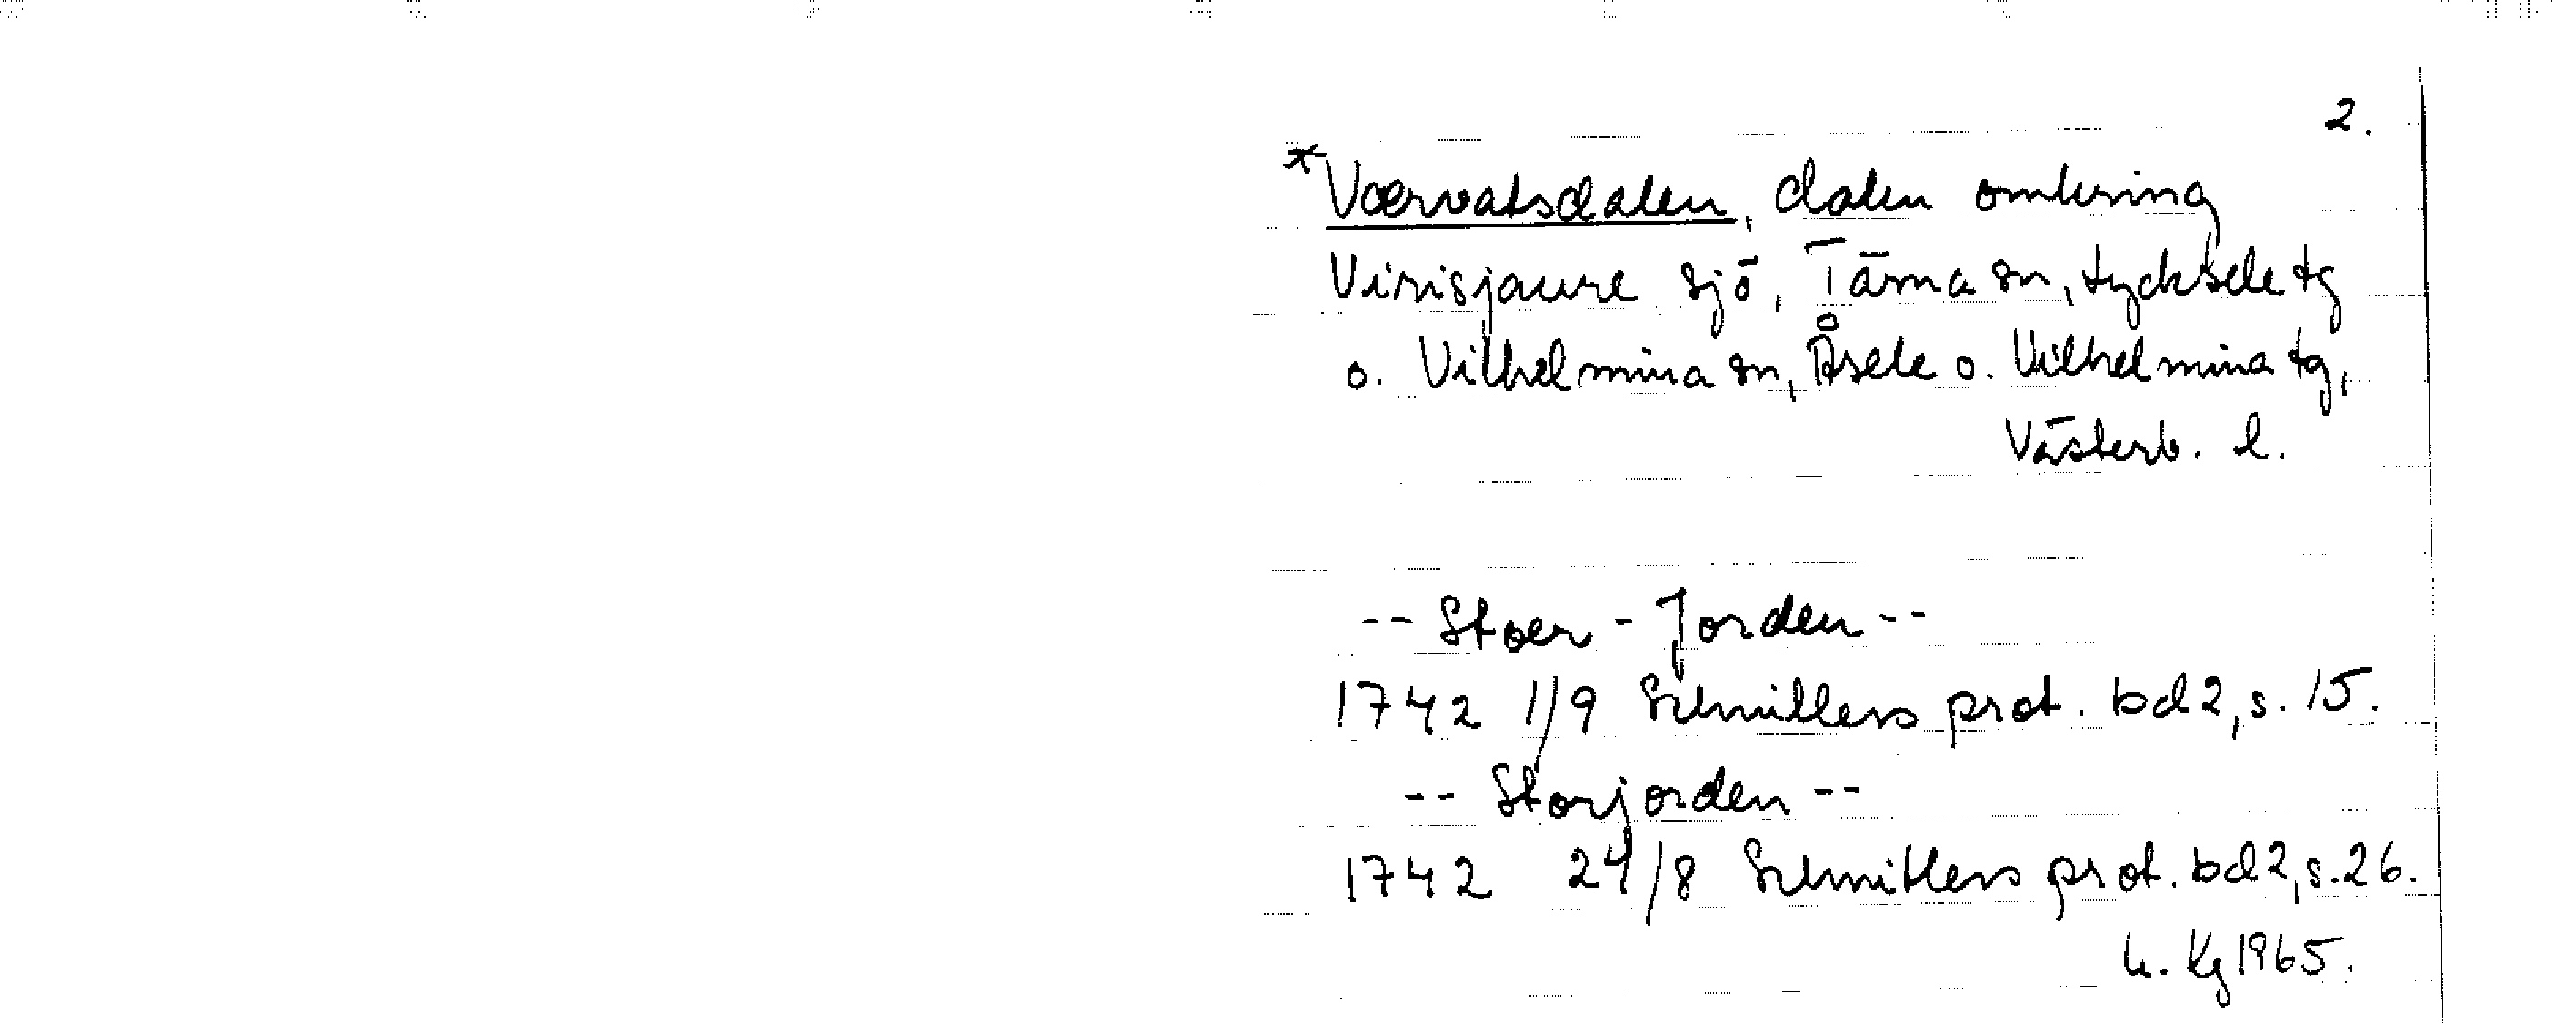 2.
*Voervatsdalen, dalen omkring
Virisjaure sjö, Tärna sn, Lycksele tg
o. Vilhelmina sn, Åsele o. Vilhelmina tg,
Västerb. l.
-- Stoer-Jorden --
1742 1/9 Schnitlers prot. bd 2, s. 15.
-- Storjorden --
1742 24/8 Schnitlers prot. bd 2, s. 26.
Kg 1965.